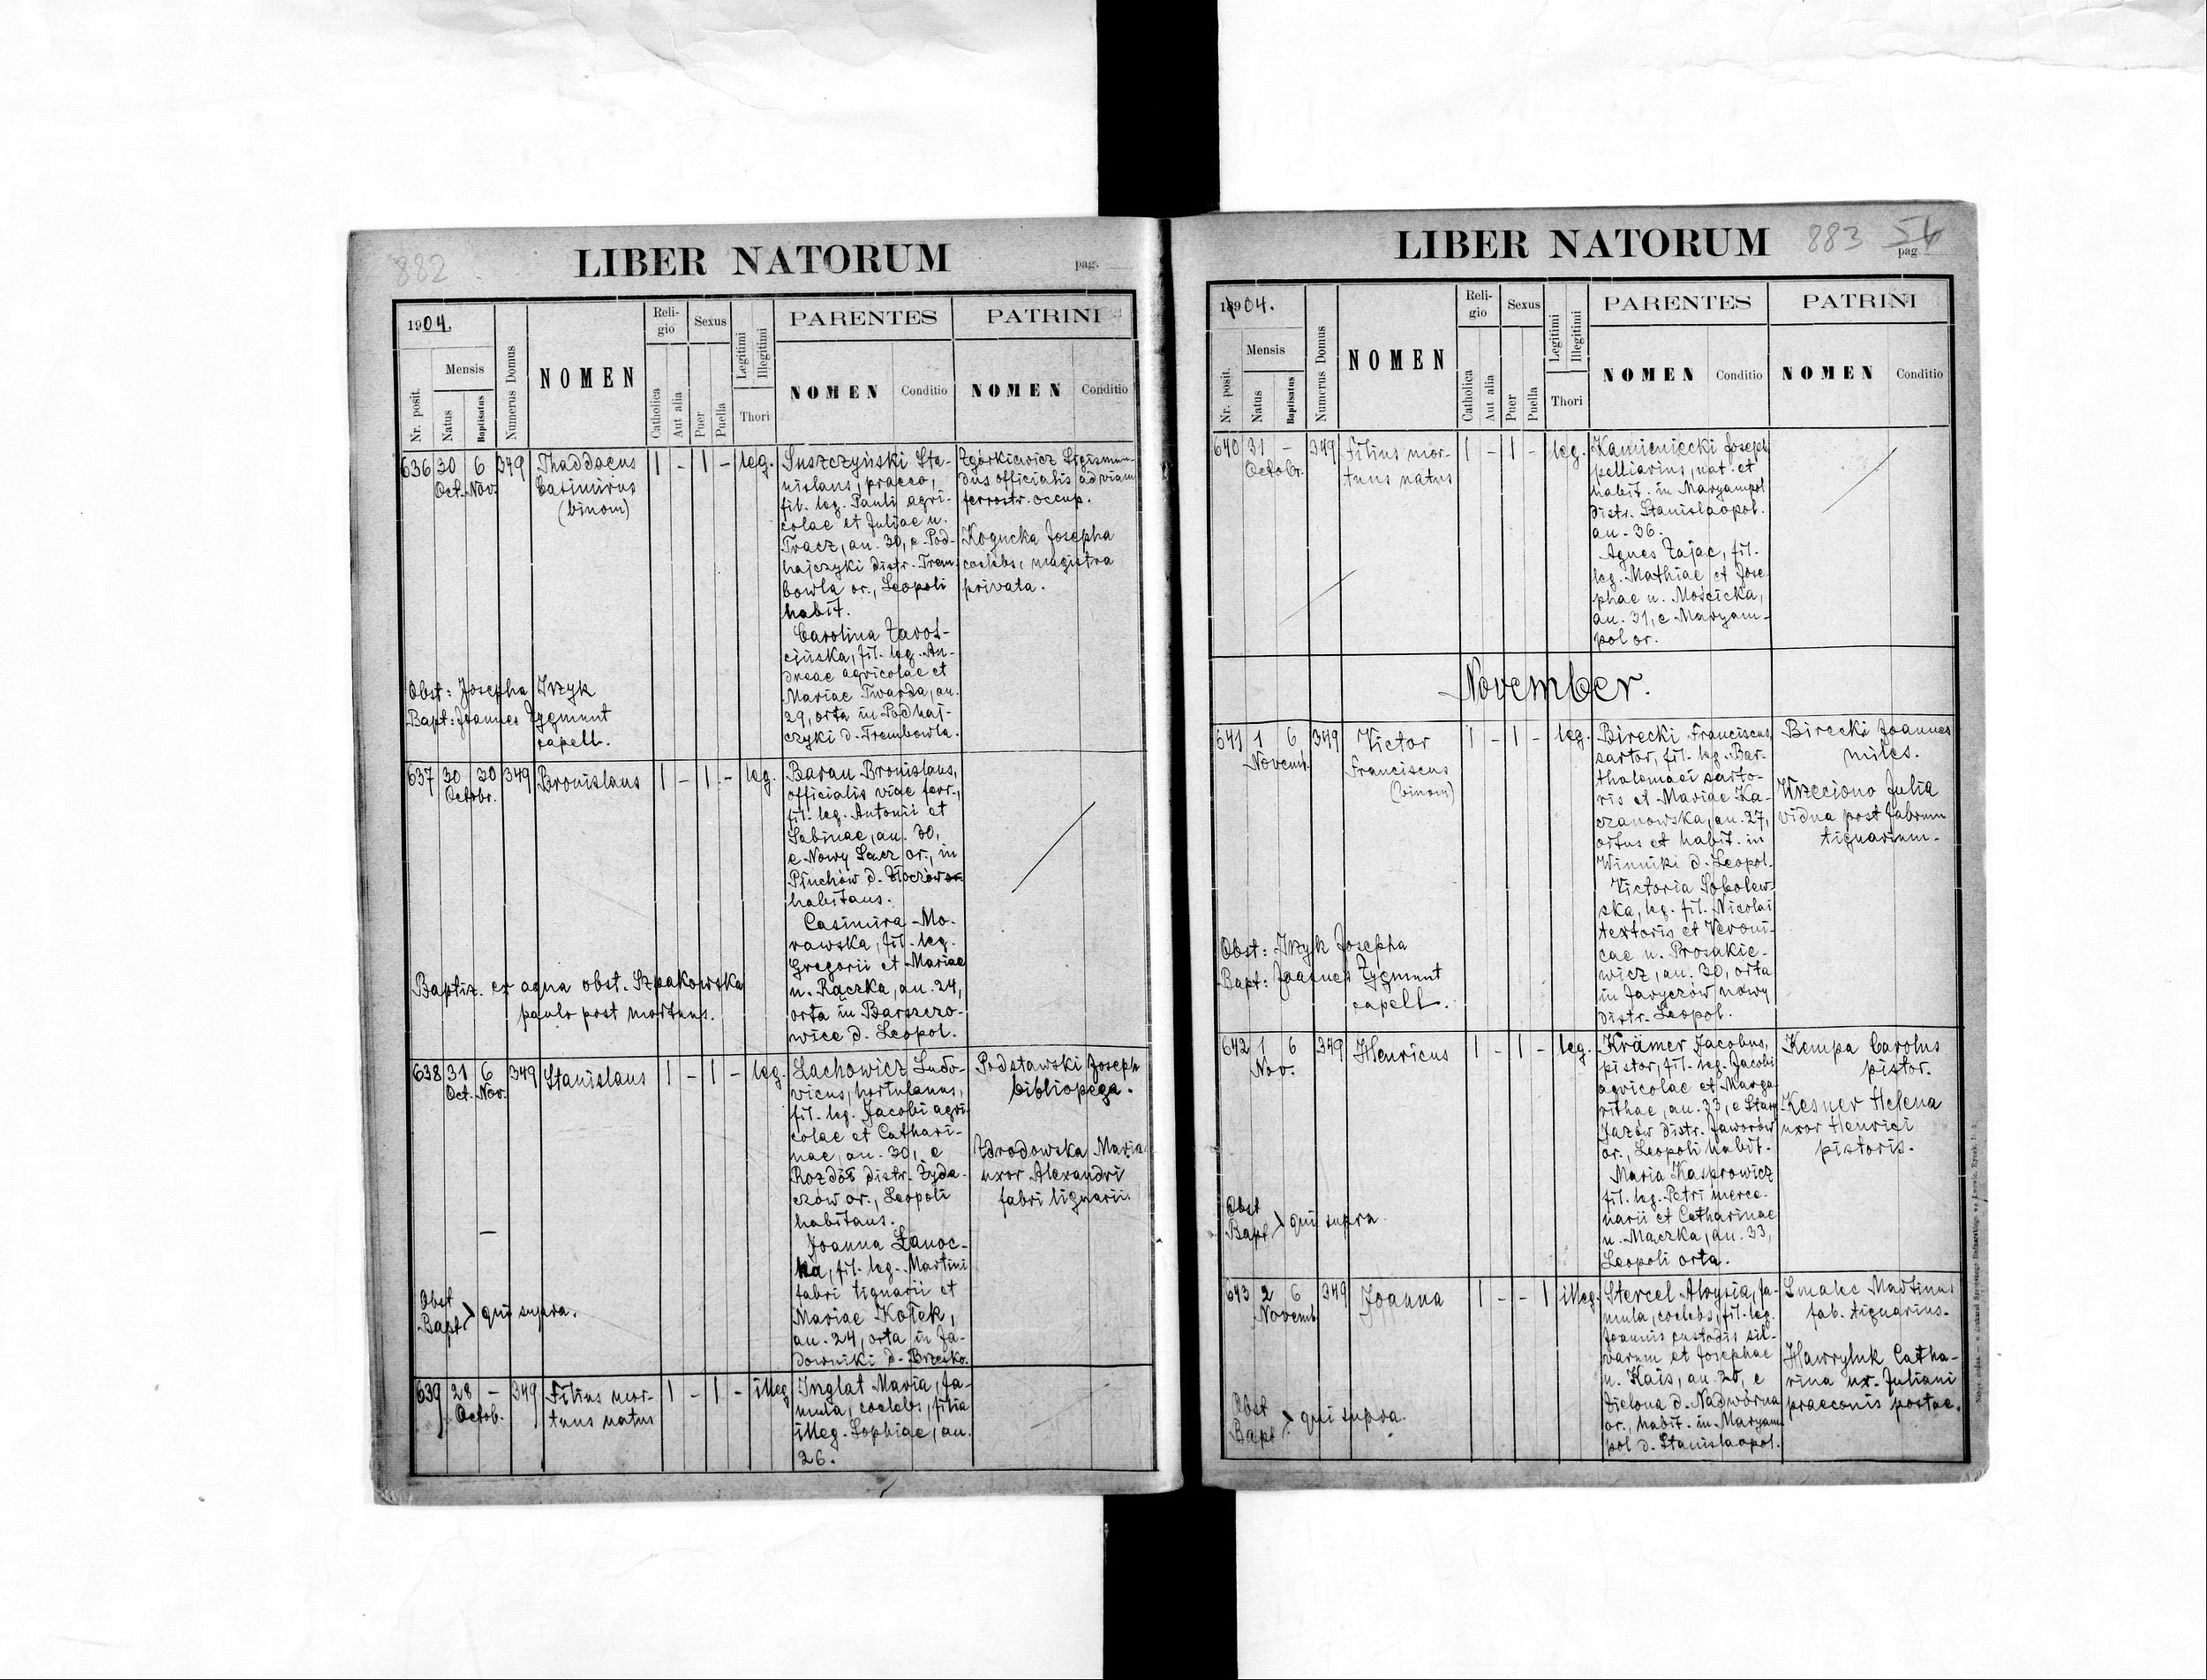 882
LIBER NATORUM
pag.
1904.
Nr. posit.
Mensis
Natus
Baptisatus
Numerus Domus
NOMEN
Reli-
gio
Catholica
Aut alia
Sexus
Puer
Puella
Legitimi
Illegitimi
Thori
PARENTES
NOMEN
Conditio
PATRINI
NOMEN
Conditio
636 30 6 349 Thaddaeus 1 - 1 - leg.
Oct. Nov. Casimirus
(binom)
Suszczyński Sta-
nislaus, praeco,
fil. leg. Pauli agri-
colae et Juliae n.
Tracz, an. 30, e Pod-
hajczyki distr. Trem-
bowla or., Leopoli
habit.
Carolina Zavos-
cińska, fil. leg. An-
dreae agricolae et
Mariae Twarda, an.
29, orta in Podhaj-
czyki d. Trembowla.
Zgórkiewicz Sigismun-
dus officialis ad viam
ferrostr. occup.
Kogucka Josepha
coelebs, magistra
privata.
Obst: Josepha Irzyk
Bapt: Joannes Zygmunt
capell.
637 30 30 349 Bronislaus 1 - 1 - leg.
Octobr.
Baran Bronislaus,
officialis viae ferr.,
fil. leg. Antonii et
Sabinae, an. 30,
e Nowy Sącz or., in
Płuchów d. Złoczów
habitans.
Casimira Mo-
rawska, fil. leg.
Gregorii et Mariae
n. Rączka, an. 24,
orta in Barszczo-
wice d. Leopol.
Baptiz. ex aqua obst. Szpakowska
paulo post mortuus.
638 31 6 349 Stanislaus 1 - 1 - leg.
Oct. Nov.
Lachowicz Ludo-
vicus, hortulanus,
fil. leg. Jacobi agri-
colae et Cathari-
nae, an. 30, e
Rozdół distr. Żyda-
czów or., Leopoli
habitans.
Joanna Łanoc-
ka, fil. leg. Martini
fabri lignarii et
Mariae Kotek,
an. 24, orta in Ja-
downiki d. Brzesko.
Podstawski Joseph
bibliopega.
Zdrodowska Maria
uxor Alexandri
fabri lignarii
Obst
Bapt. > qui supra.
639 28 - 349 Filius mor- 1 - 1 - illeg.
Octob. tuus natus
Inglat Maria, fa-
mula, coelebs, filia
illeg. Sophiae, an.
26.
LIBER NATORUM
883 56
pag.
1904.
Nr. posit.
Mensis
Natus
Baptisatus
Numerus Domus
NOMEN
Reli-
gio
Catholica
Aut alia
Sexus
Puer
Puella
Legitimi
Illegitimi
Thori
PARENTES
NOMEN
Conditio
PATRINI
NOMEN
Conditio
640 31 - 349 Filius mor- 1 - 1 - leg.
Octobr. tuus natus
Kamieniecki Joseph
pelliarius, nat. et
habit. in Maryampol
distr. Stanislaopol.
an. 36.
Agnes Zając, fil.
leg. Mathiae et Jose-
phae n. Mościcka,
an. 31, e Maryam-
pol or.
November.
641 1 6 349 Victor 1 - 1 - leg.
Novemb. Franciscus
(binom)
Birecki Franciscus,
sartor, fil. leg. Bar-
tholomaei sarto-
ris et Mariae Ka-
czanowska, an. 27,
ortus et habit. in
Winniki d. Leopol.
Victoria Sobolew-
ska, leg. fil. Nicolai
textoris et Veroni-
cae n. Prosakie-
wicz, an. 30, orta
in Jaryczów nowy
distr. Leopol.
Birecki Joannes
miles.
Wrzeciono Julia
vidua post fabrum
tignarium.
Obst: Irzyk Josepha
Bapt: Joannes Zygmunt
capell.
642 1 6 349 Henricus 1 - 1 - leg.
Nov.
Krämer Jacobus,
pistor, fil. leg. Jacobi
agricolae et Marga-
rithae, an. 33, e Stary
Jazów distr. Jaworów
or., Leopoli habit.
Maria Kasprowicz
fil. leg. Petri merce-
narii et Catharinae
n. Mączka, an. 33,
Leopoli orta.
Kempa Carolus
pistor.
Kesner Helena
uxor Henrici
pistoris.
Obst
Bapt > qui supra
643 2 6 349 Joanna 1 - - 1 illeg.
Novemb.
Stercel Aloysia, fa-
mula, coelebs, fil. leg.
Joannis custodis sil-
varum et Josephae
n. Kais, an. 25, e
Zielona d. Nadwórna
or., habit. in Maryam-
pol d. Stanislaopol.
Smalec Martinus
fab. tignarius.
Hawryluk Catha-
rina ux. Juliani
praeconis postae.
Obst
Bapt > qui supra.